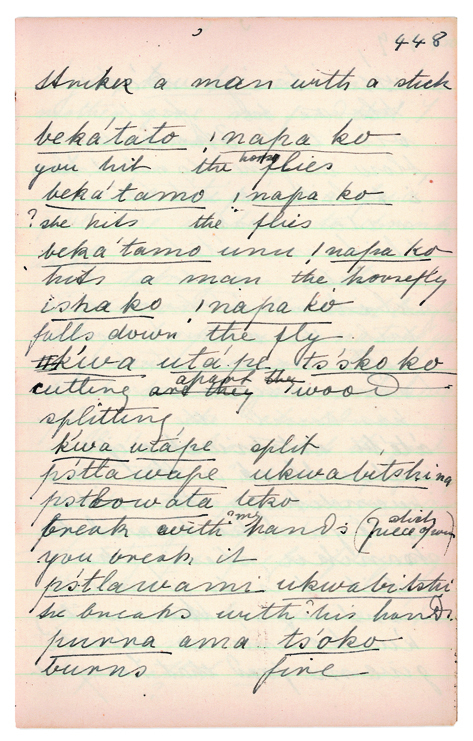 448
strikes a man with a stick
beká'tato , napa ko
you hit the horse flies
beká'tamo , napa ko
? she hits the flies
beká'tamo unu , napa ko
hits a man the horsefly
ishako , napa ko
falls down the fly
k'wa utá.pe ts'sko ko
cutting are they apart the wood
splitting
k'wa utápe split
pstlawape ukwabítshina
pstlowata leko
break with my hands (dish piece of
you break it
pstlawami ukwabitshi
he breaks with his hands.
purra ama ts'oko
burns fire